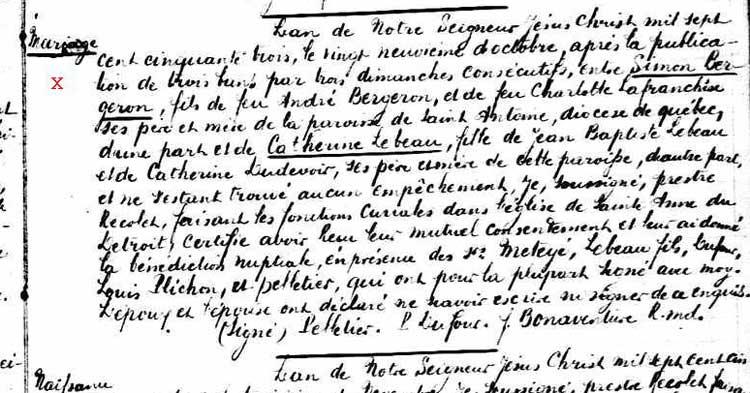 Lan de Notre Seigneur Jésus Christ mil sept
Mariage
cent cinquante trois, le vingt neuvieme d'octobre, après la publica-
X
tion de trois bans par trois dimanches consécutifs, entre Simon Ber-
geron, fils de feu André Bergeron, et de feu Charlotte Lafranchise
ses père et mère de la paroisse de Saint Antoine, diocèse de québec,
d'une part et de Catherine Lebeau, fille de Jean Baptiste Lebeau
et de Catherine Ludevoir, ses père et mère de cette paroisse, d'autre part,
et ne s'estant trouvé aucun empêchement, Je, soussigné, prestre
Recolet, faisant les fonctions curiales dans l'église de Sainte Anne du
Détroit, certifie avoir leur mutuel consentement et leur ai donné
la bénédiction nuptiale, en présence des Srs Meteyé, Lebeau fils, Dufour,
Louis Plichon, et pelletier, qui ont pour la pluspart signé avec moy.
L'époux et l'épouse ont déclaré ne savoir escrire ni signer de ce enquis.
(Signé) Pelletier. P. Dufour. f. Bonaventure R. md.
Lan de Notre Seigneur Jésus Christ mil sept cent cin
Naissance
Je soussigné, prestre Recolet